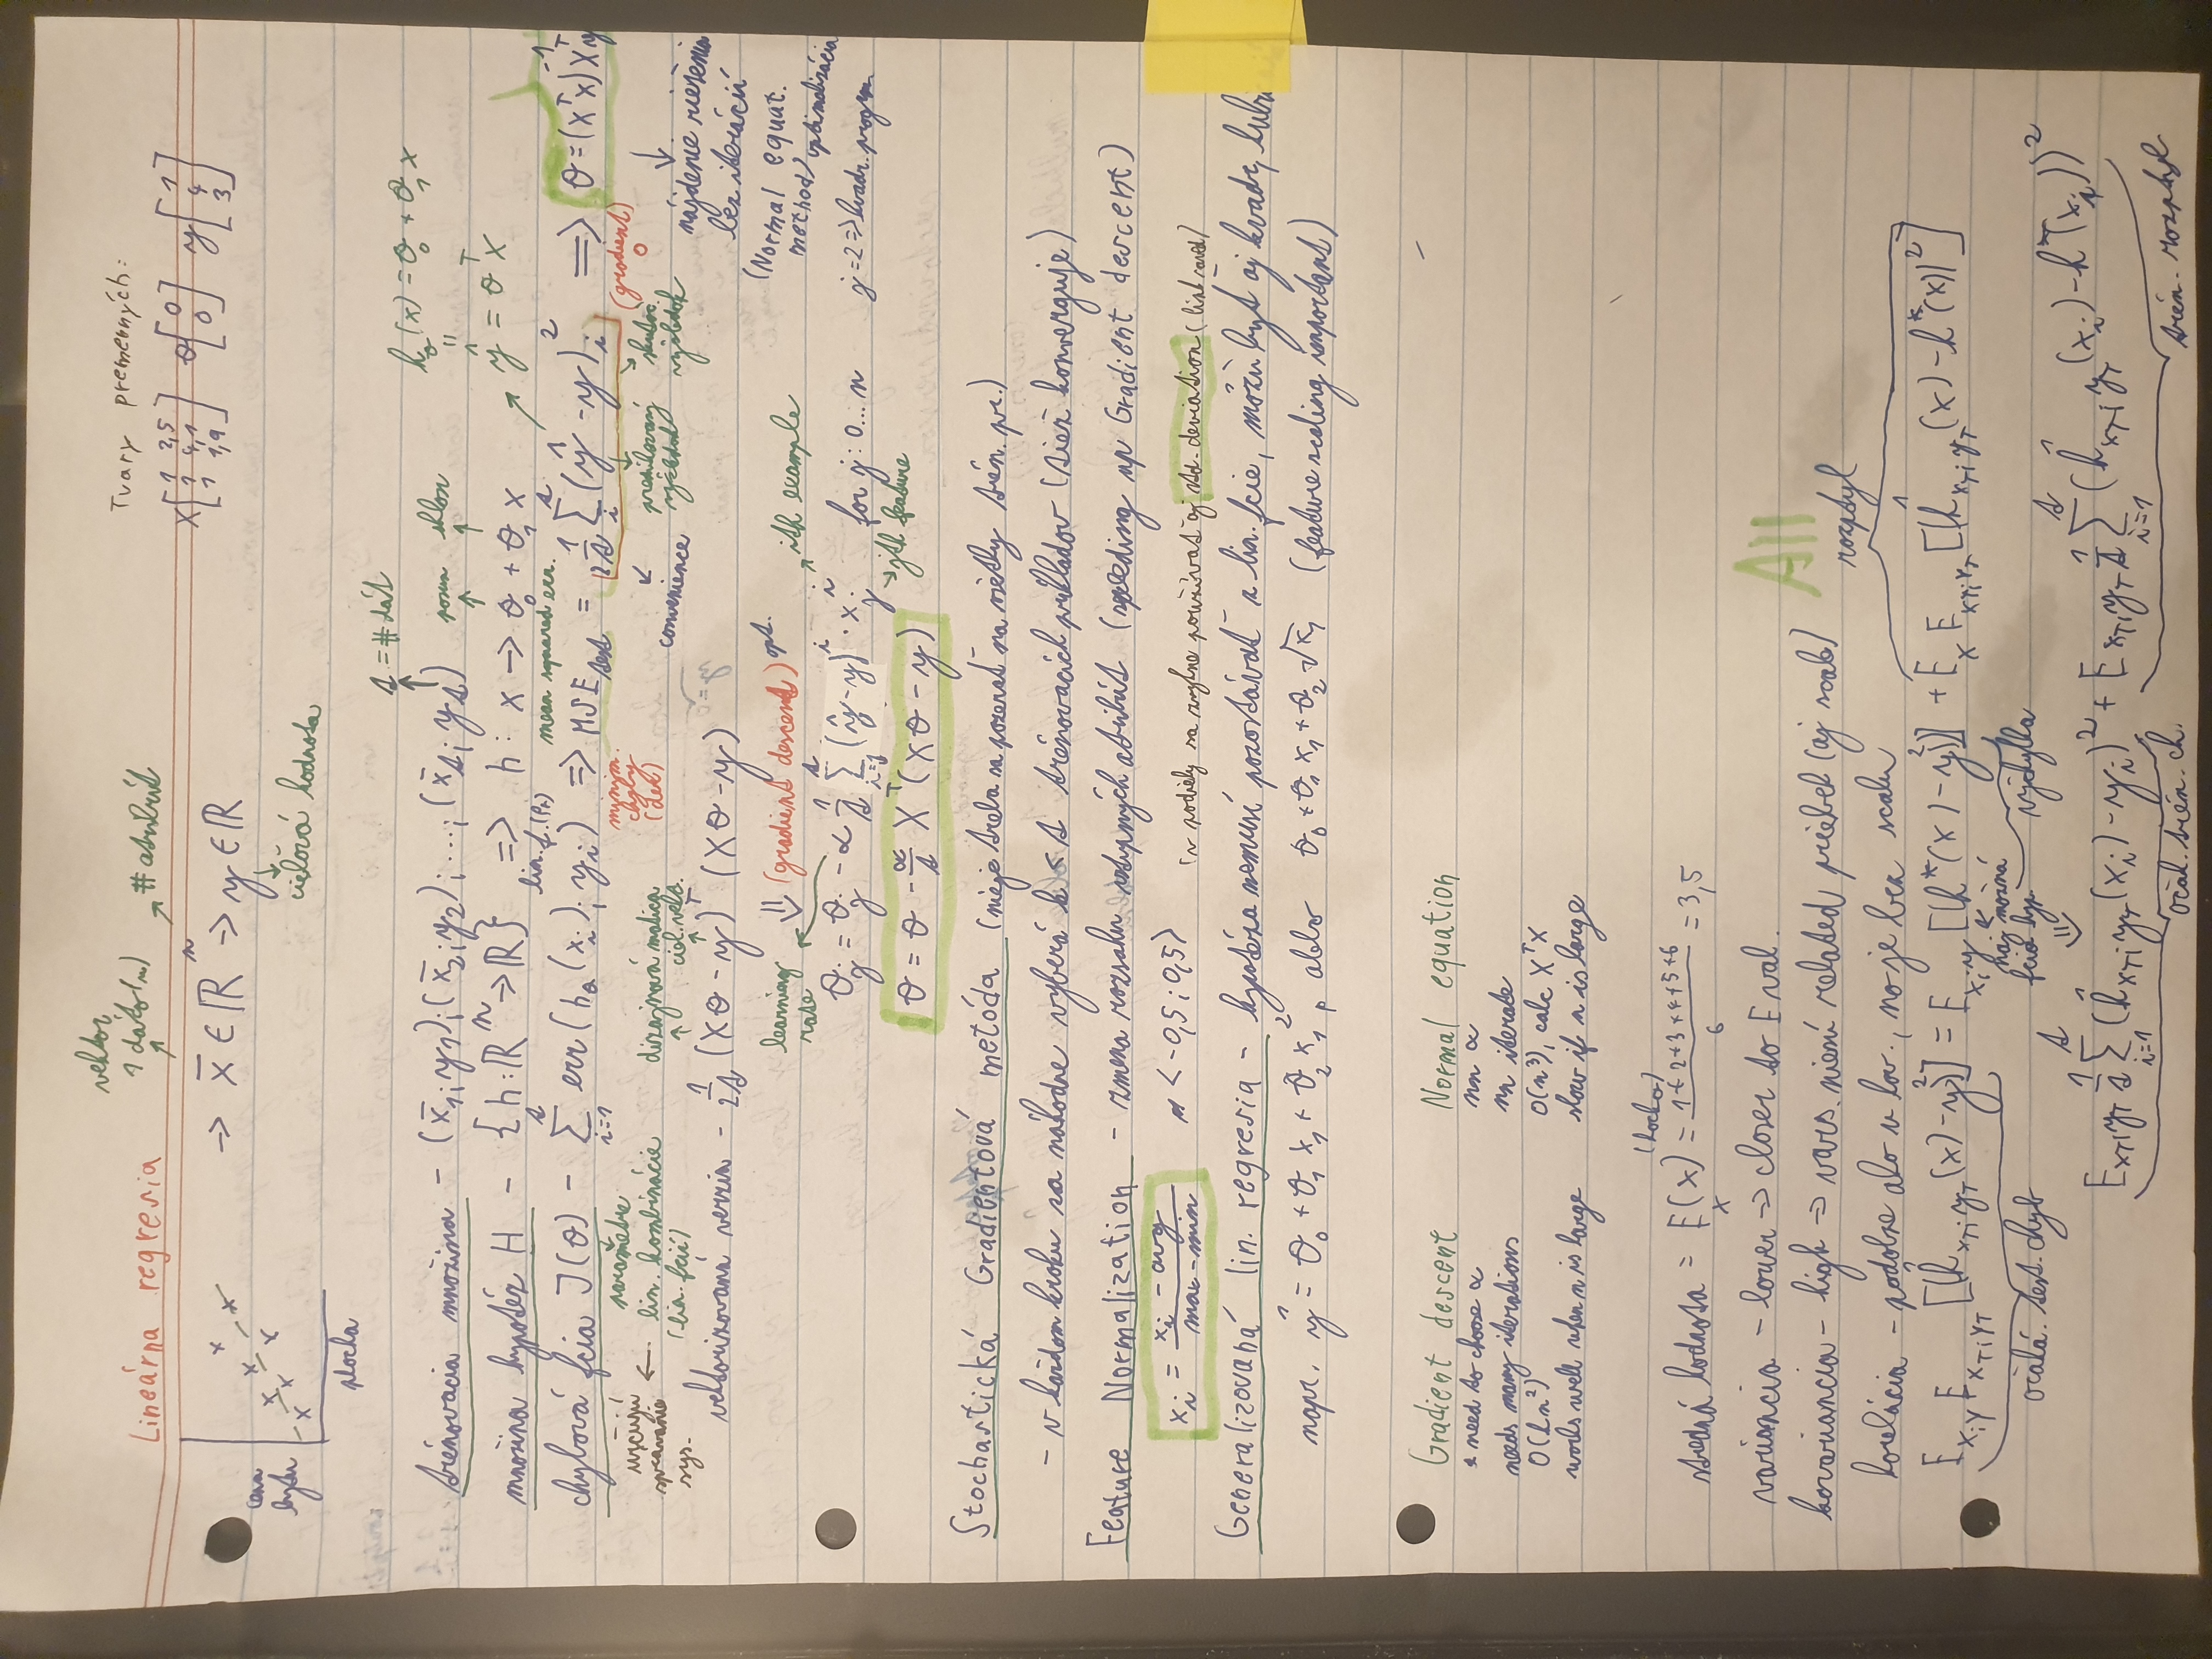 Lineárna regresia
vektor
1 dáto(m)
# atribút
Tvary premenných:
X [1 2,5 1 4,1 1 1,9] θ [0 0] y [1 4 3]
→ x̄ ∈ ℝⁿ → y ∈ ℝ
cieľová hodnota
cena
bytu
plocha
t = # dát
trénovacia množina - (x̄₁; y₁); (x̄₂; y₂); ...; (x̄ₜ; yₜ)
posun sklon
h_θ(x) = θ₀ + θ₁x
množina hypotéz H - {h: ℝⁿ → ℝ} => h: x → θ₀ + θ₁x
ŷ = θᵀx
lin. f. (pr) mean squared err.
chybová fcia J(θ) - Σᵢ₌₁ᵗ err(h_θ(xᵢ); yᵢ) => MSE_test = 1/2t Σᵢᵗ (ŷ - y)ᵢ² => θ = (XᵀX)⁻¹Xᵀy
určujú
správanie
sys.
parametre
lin. kombinácie
(lin. fcií)
dizajnová matica
cieľ. vekt.
minim.
chyby
(der)
convenience
predikovaný
výsledok
skutoč.
výsledok
(gradient)
0
nájdenie riešenia
bez iterácií
(Normal equat.
method) optimalizácia
vektorizovaná verzia - 1/2t (Xθ - y)ᵀ (Xθ - y)
learning
rate
(gradient descent) opt.
ith example
θⱼ = θⱼ - α 1/t Σᵢ₌₁ᵗ (ŷ - y)ⁱ · xⱼⁱ for j: 0...n
j=2 => kvadr. progrm
jth feature
θ = θ - α/t Xᵀ(Xθ - y)
Stochastická Gradientová metóda (nieje treba sa pozerať na všetky trén. pr.)
- v každom kroku sa náhodne vyberá k < t trénovacích príkladov (tiež konverguje)
Feature Normalization - zmena rozsahu vstupných atribút (speeding up Gradient descent)
xᵢ = (xᵢ - avg)/(max - min) <-0,5; 0,5>
(v podiely sa zvykne používať aj std. deviation (link saved)
Generalizovaná lin. regresia - hypotéza nemusí pozostávať z lin. fcie, môžu byť aj kvadr,
napr. ŷ = θ₀ + θ₁x₁ + θ₂x₁², alebo θ₀ + θ₁x₁ + θ₂√x₁ (feature scaling important)
Gradient descent Normal equation
need to choose α nn α
needs many iterations nn iterate
O(kn²) O(n³), calc XᵀX
works well when n is large slow if n is large
(kocka)
stredná hodnota = Eₓ(x) = (1+2+3+4+5+6)/6 = 3,5
variancia - lower → closer to E val.
kovariancia - high => vars. niesú related priebeh (aj scale)
All
korelácia - podobne ako u kov., no je bez scalu
rozptyl
E_{x;y} E_{x_T;y_T} [(ĥ_{x_T;y_T}(x) - y)²] = E_{x;y} [(h*(x) - y)²] + E_x E_{x_T;y_T} [(ĥ_{x_T;y_T}(x) - h*(x))²]
očaká. test. chyb
naj možná
fcia hyp.
výchylka
E_{x_T;y_T} 1/t Σᵢ₌₁ᵗ (ĥ_{x_T;y_T}(xᵢ) - yᵢ)² + E_{x_T;y_T} 1/t Σᵢ₌₁ᵗ (ĥ_{x_T;y_T}(xᵢ) - h*(xᵢ))²
očak. trén. ch.
trén. rozptyl